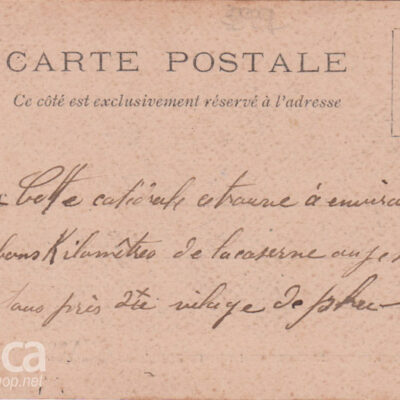 CARTE POSTALE
Ce côté est exclusivement réservé à l'adresse
Cette catédrale ce trouve à enviro
bons Kilomètres de la caserne
tous près village de
ca
op.net